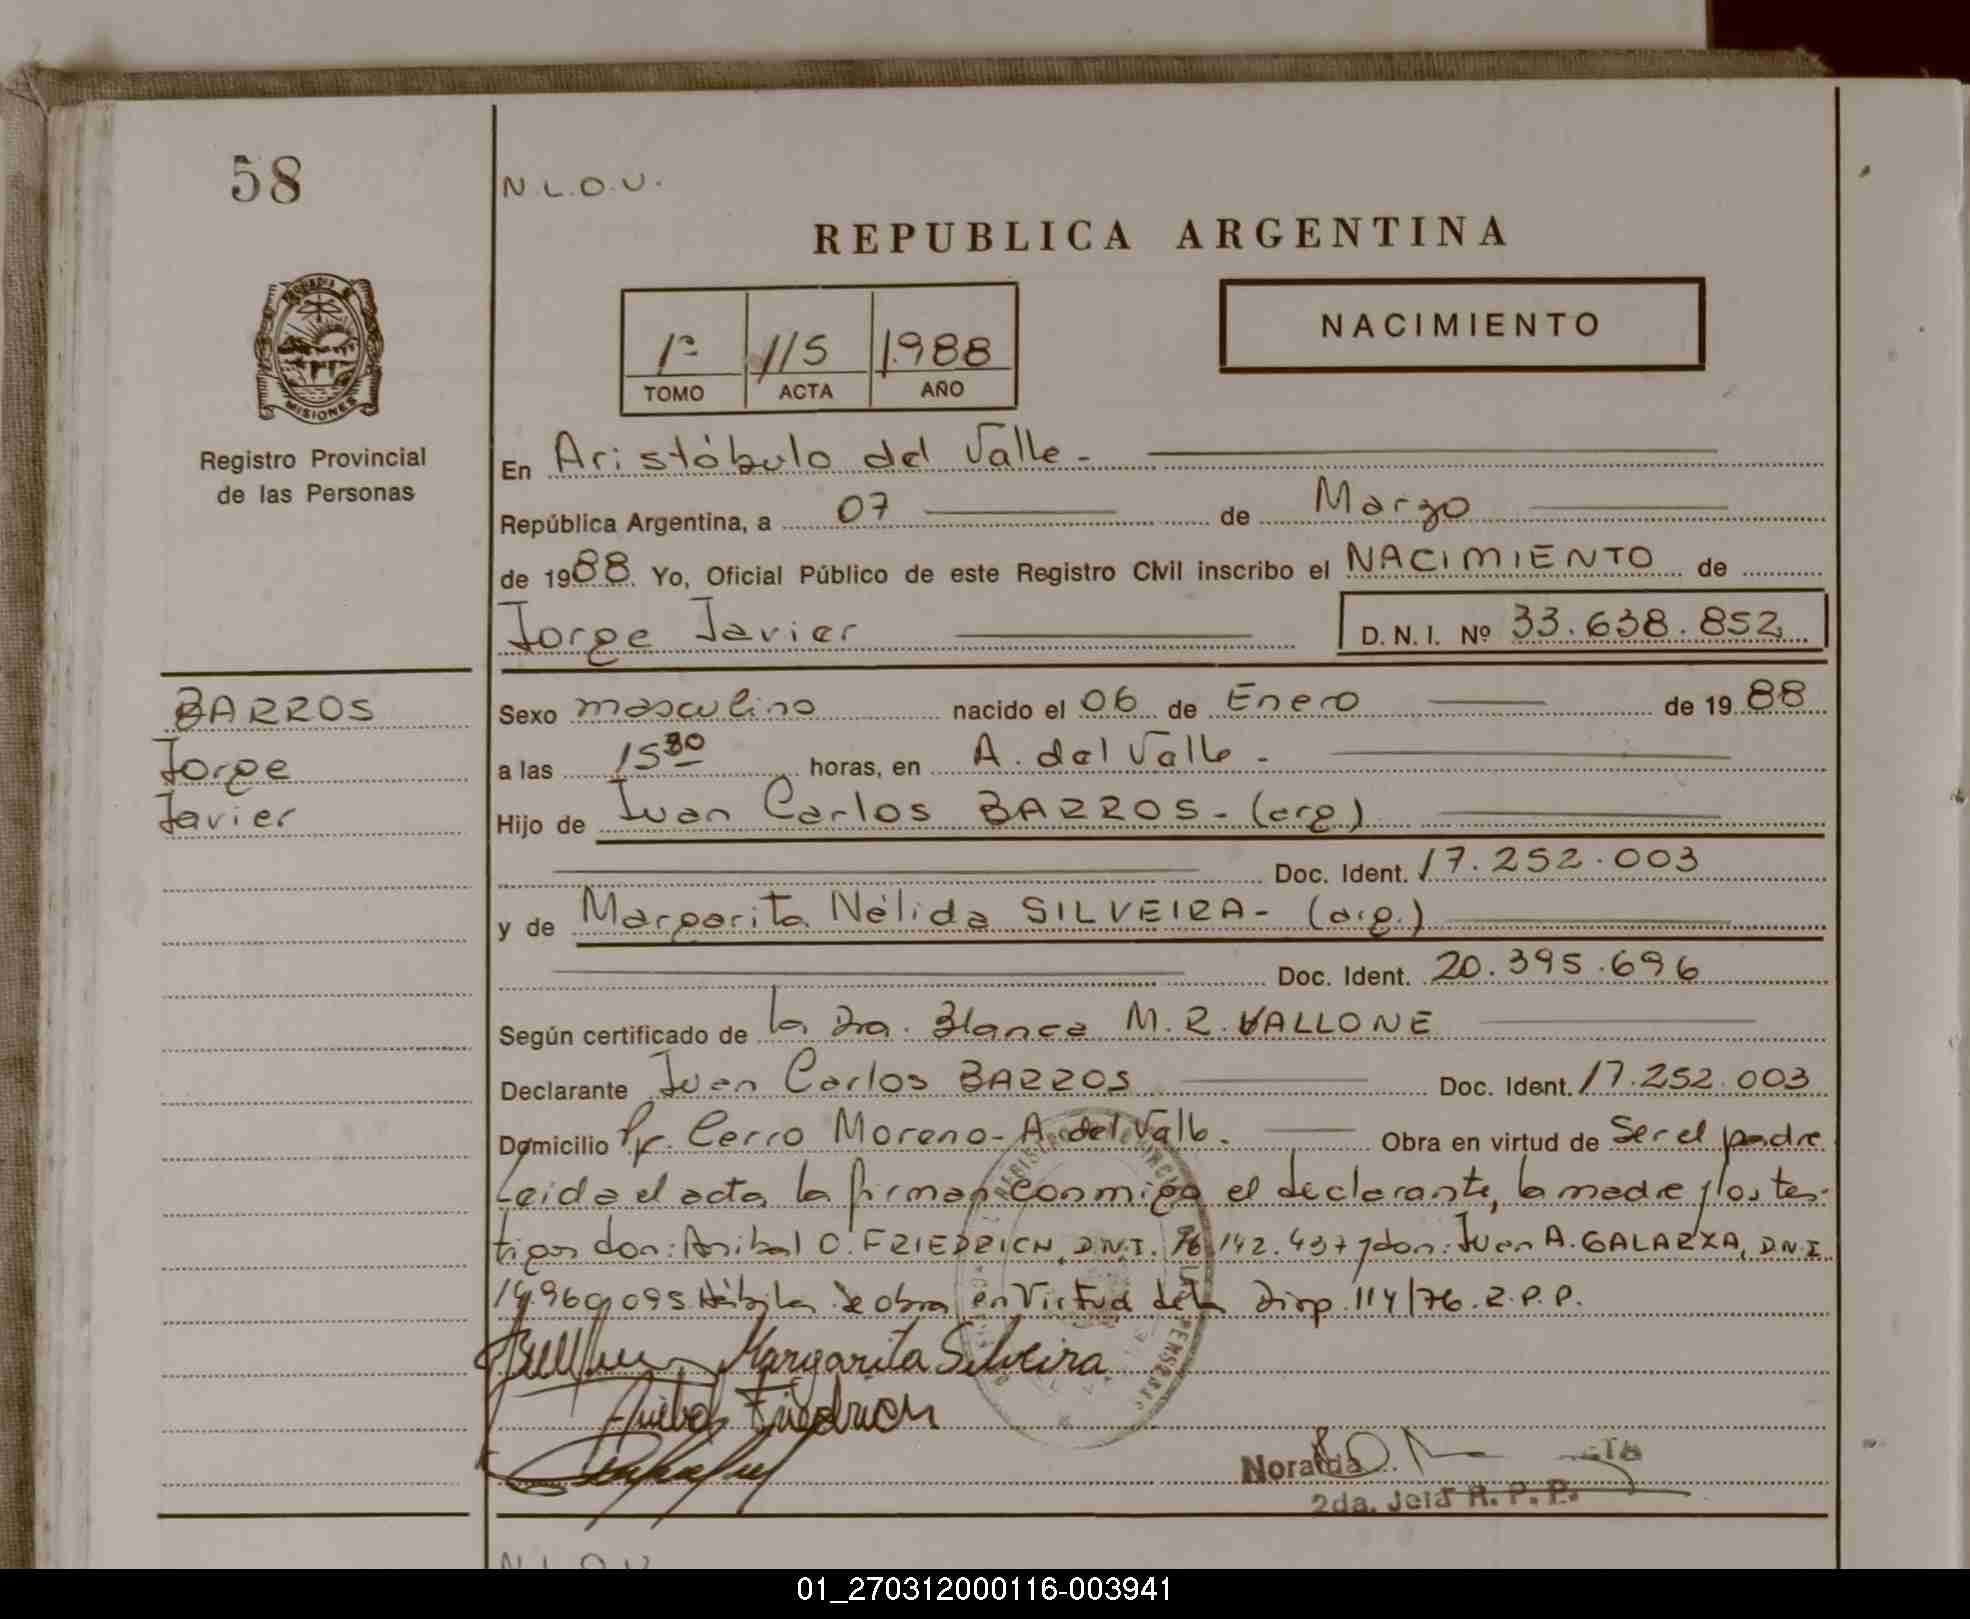 58
N.L.O.V.
REPUBLICA ARGENTINA
MISIONES
Registro Provincial
de las Personas
1º 115 1988
TOMO ACTA AÑO
NACIMIENTO
En Aristóbulo del Valle -
República Argentina, a 07 de Marzo
de 1988. Yo, Oficial Público de este Registro Civil inscribo el NACIMIENTO de
Jorge Javier D.N.I. Nº 33.638.852
BARROS
Jorge
Javier
Sexo masculino nacido el 06 de Enero de 1988
a las 15 30 horas, en A. del Valle -
Hijo de Juan Carlos BARROS - (arg)
Doc. Ident. 17.252.003
y de Margarita Nélida SILVEIRA - (arg.)
Doc. Ident. 20.395.696
Según certificado de la Dra. Blanca M. R. VALLONE
Declarante Juan Carlos BARROS Doc. Ident. 17.252.003
Domicilio Pje. Cerro Moreno - A. del Valle. Obra en virtud de Ser el padre
Leida el acta, la firman conmigo el declarante, la madre y los tes-
tigos don: Anibal O. FRIEDRICH, D.N.I. 16.142.437 y don: Juan A. GALARXA, D.N.I.
14.960.095. Hábiles. Se obra en Virtud de la Disp. 114/76. R.P.P.
Margarita Silveira
Anibal Friedrich
2da. Jefa R. P. P.
N.L.O.V.
01_270312000116-003941